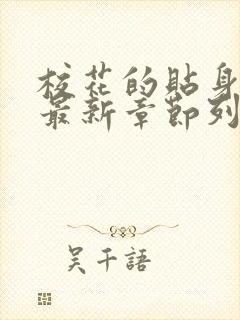 校花的貼身
最新章節列
吴千語